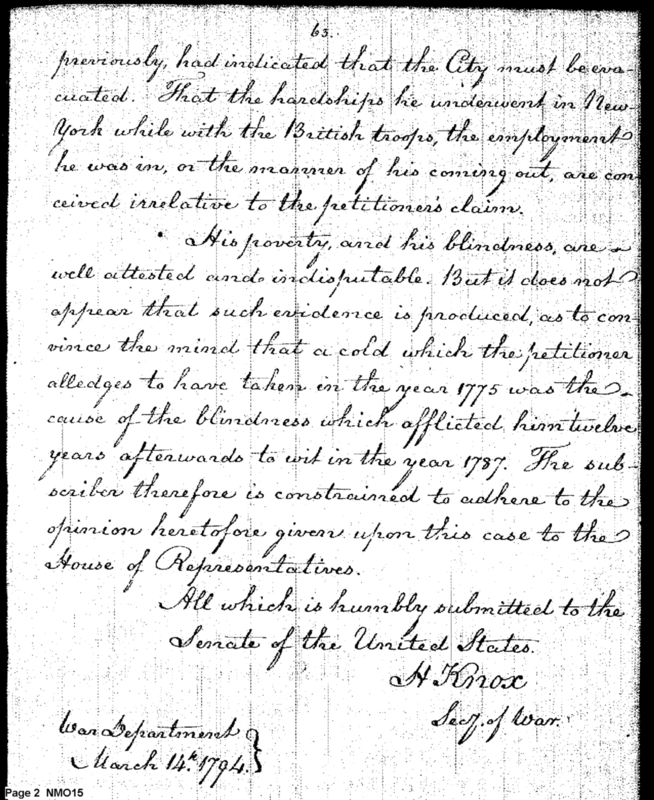 63.
previously, had indicated that the City must be eva-
cuated. That the hardships he underwent in New-
York while with the British troops, the employment
he was in, or the manner of his coming out, are con-
ceived irrelative to the petitioner's claim.
His poverty, and his blindness, are
well attested and indisputable. But it does not
appear that such evidence is produced, as to con-
vince the mind that a cold which the petitioner
alledges to have taken in the year 1775 was the
cause of the blindness which afflicted him twelve
years afterwards to wit in the year 1787. The sub-
scriber therefore is constrained to adhere to the
opinion heretofore given upon this case to the
House of Representatives.
All which is humbly submitted to the
Senate of the United States.
H Knox
Secy. of War.
War Department
March 14th. 1794.
Page 2 NMO15